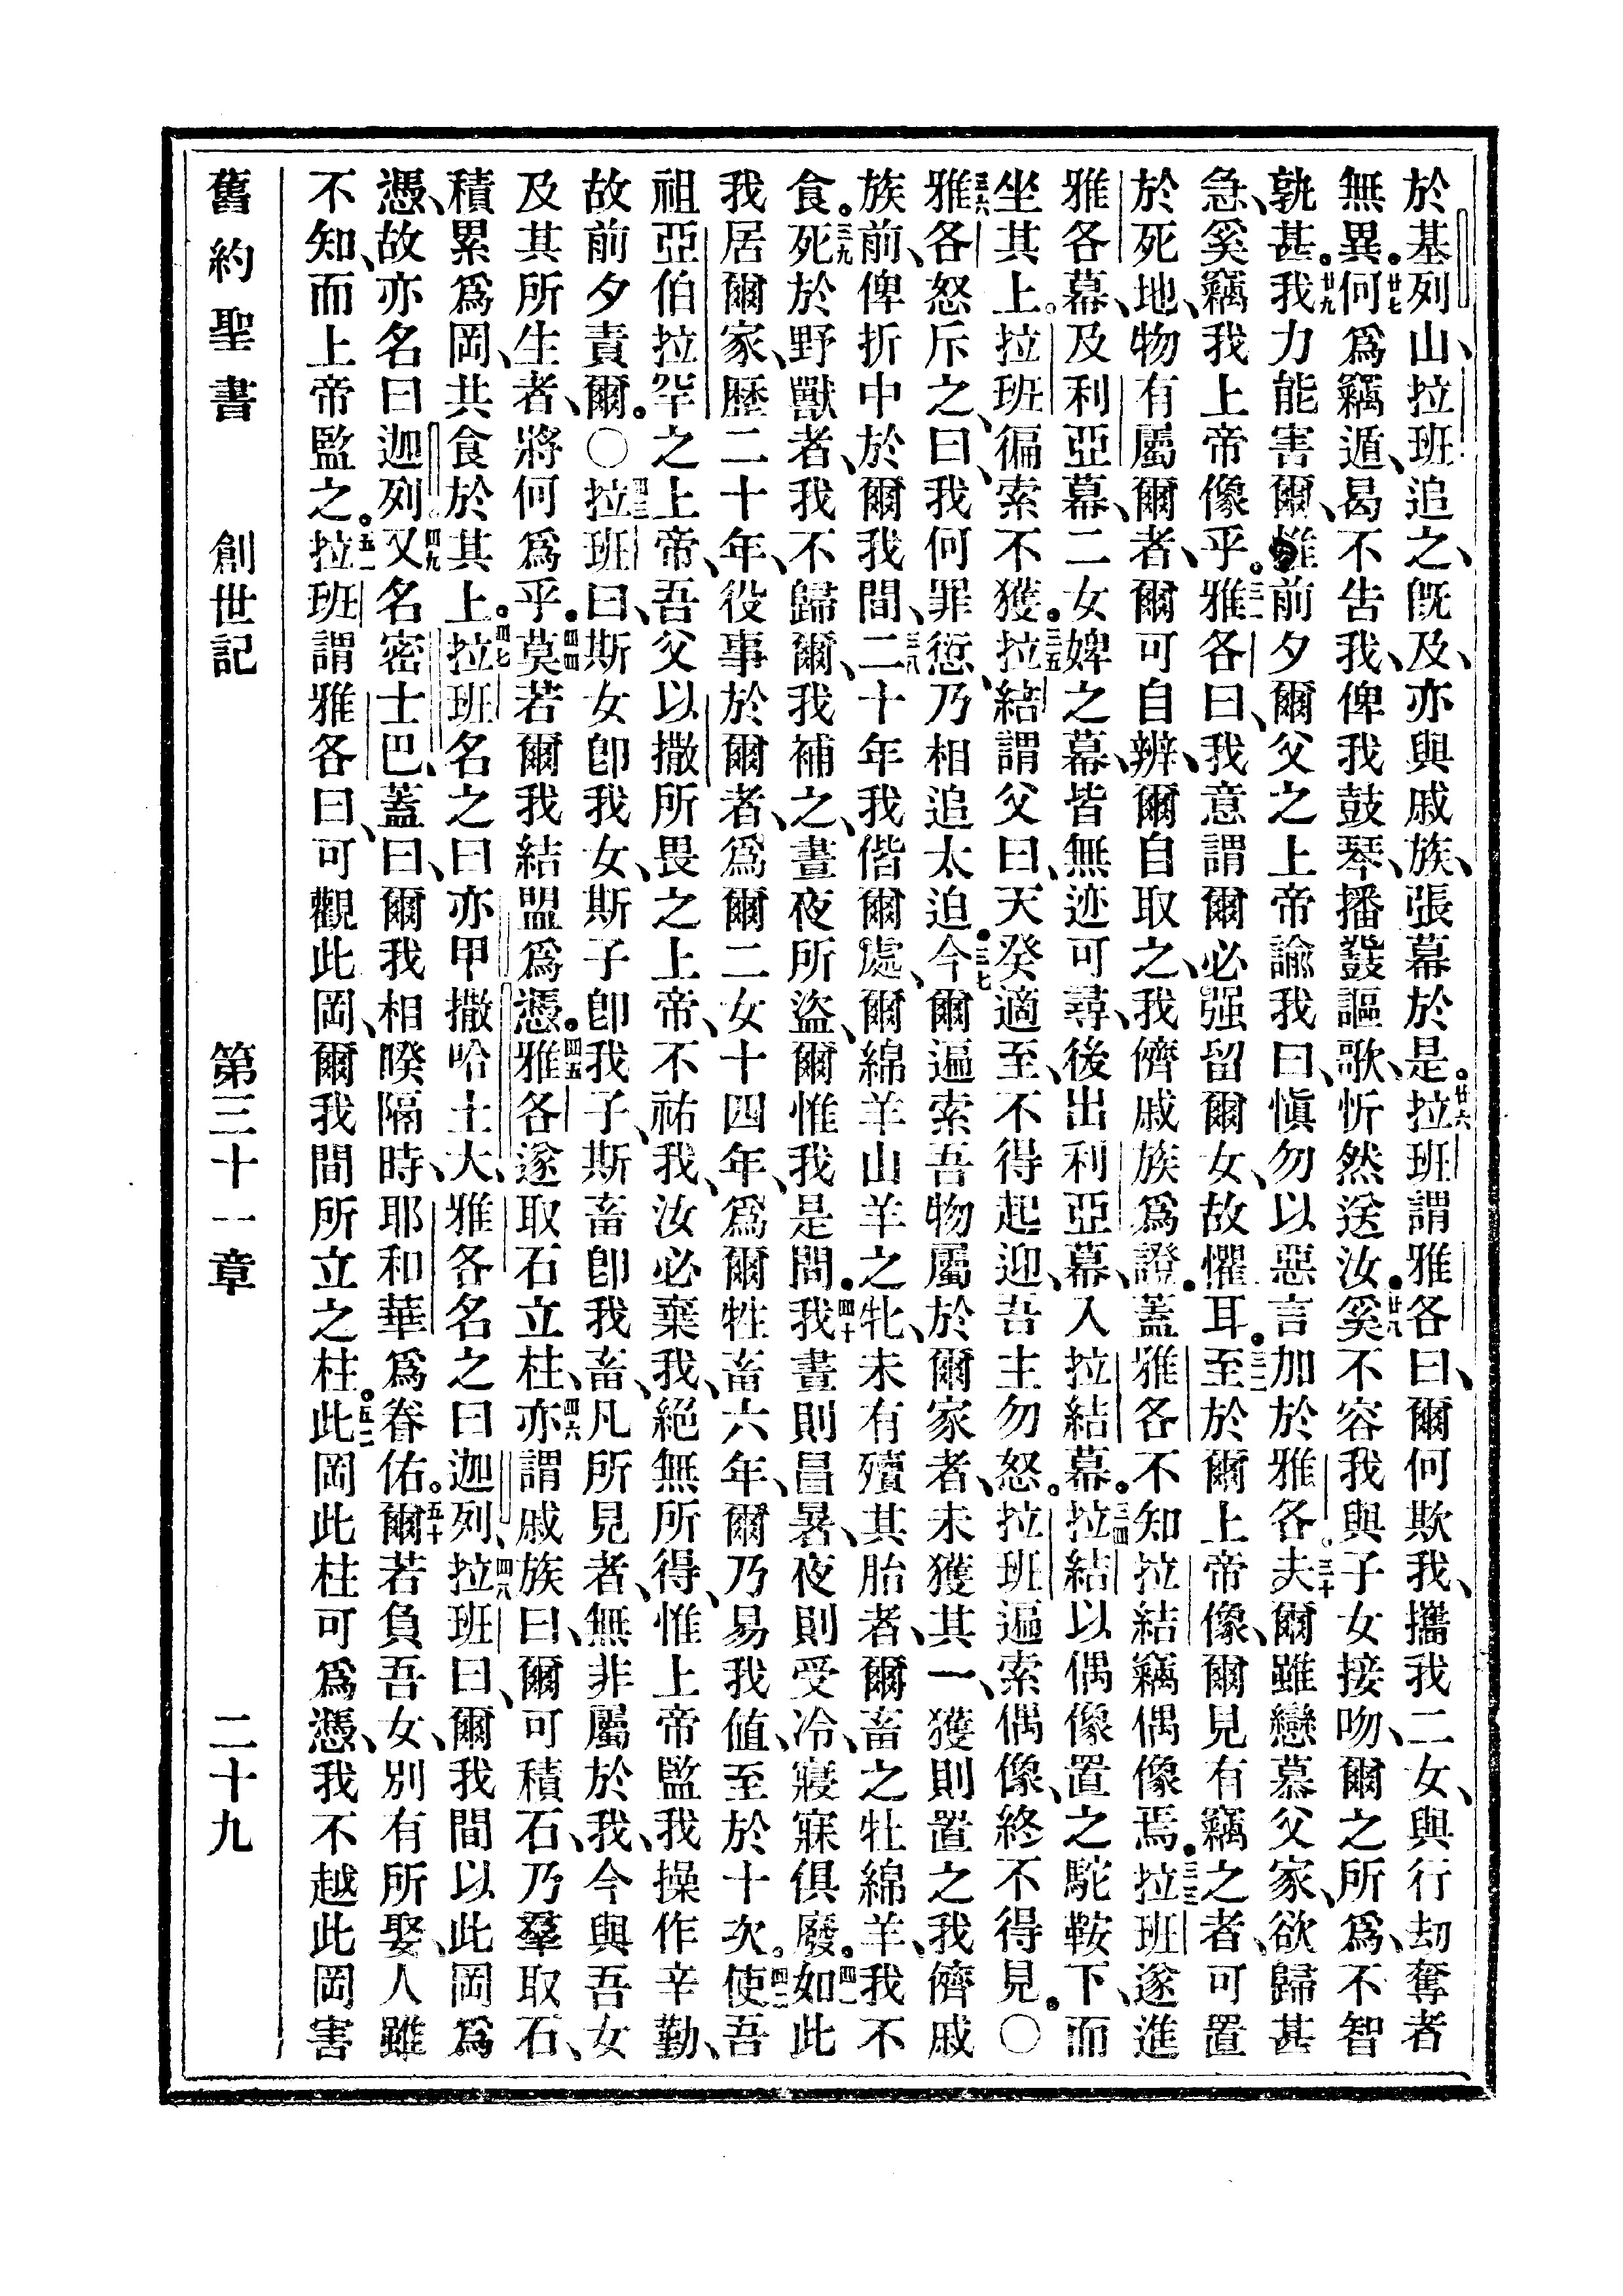 於基列山、拉班追之、旣及、亦與戚族、張幕於是。廿六拉班謂雅各曰、爾何欺我、攜我二女、與行刧奪者
無異。廿七何爲竊遁、曷不告我、俾我鼓琴、播鼗謳歌、忻然送汝。廿八奚不容我與子女接吻、爾之所爲、不智
孰甚。廿九我力能害爾、惟前夕爾父之上帝諭我曰、愼勿以惡言加於雅各。三十夫爾雖戀慕父家、欲歸甚
急、奚竊我上帝像乎。三一雅各曰、我意謂爾必强留爾女、故懼耳。三二至於爾上帝像、爾見有竊之者、可置
於死地、物有屬爾者、爾可自辨、爾自取之、我儕戚族爲證。蓋雅各不知拉結竊偶像焉。三三拉班遂進
雅各幕、及利亞幕、二女婢之幕、皆無迹可尋、後出利亞幕、入拉結幕。三四拉結以偶像置之駝鞍下、而
坐其上。拉班徧索不獲。三五拉結謂父曰、天癸適至、不得起迎、吾主勿怒。拉班遍索偶像、終不得見。〇
三六雅各怒斥之、曰、我何罪愆、乃相追太迫。三七今爾遍索吾物屬於爾家者、未獲其一、獲則置之我儕戚
族前、俾折中於爾我間、三八二十年我偕爾處、爾綿羊山羊之牝、未有殰其胎者、爾畜之牡綿羊、我不
食。三九死於野獸者、我不歸爾、我補之、晝夜所盜、爾惟我是問。四十我晝則冒暑、夜則受冷、寢寐俱廢。四一如此
我居爾家、歷二十年、役事於爾者、爲爾二女十四年、爲爾牲畜六年、爾乃易我値、至於十次。四二使吾
祖亞伯拉罕之上帝、吾父以撒所畏之上帝、不祐我、汝必棄我、絕無所得、惟上帝監我操作辛勤、
故前夕責爾。〇四三拉班曰、斯女卽我女、斯子卽我子、斯畜卽我畜、凡所見者、無非屬於我、今與吾女
及其所生者、將何爲乎。四四莫若爾我結盟爲憑。四五雅各遂取石立柱、四六亦謂戚族曰、爾可積石、乃羣取石、
積累爲岡、共食於其上。四七拉班名之曰亦甲撒哈土大、雅各名之曰迦列、四八拉班曰、爾我間以此岡爲
憑、故亦名曰迦列。四九又名密士巴、蓋曰、爾我相暌隔時、耶和華爲眷佑。五十爾若負吾女、別有所娶、人雖
不知、而上帝監之。五一拉班謂雅各曰、可觀此岡、爾我間所立之柱。五二此岡此柱可爲憑、我不越此岡害
舊約聖書　創世記　第三十一章　二十九